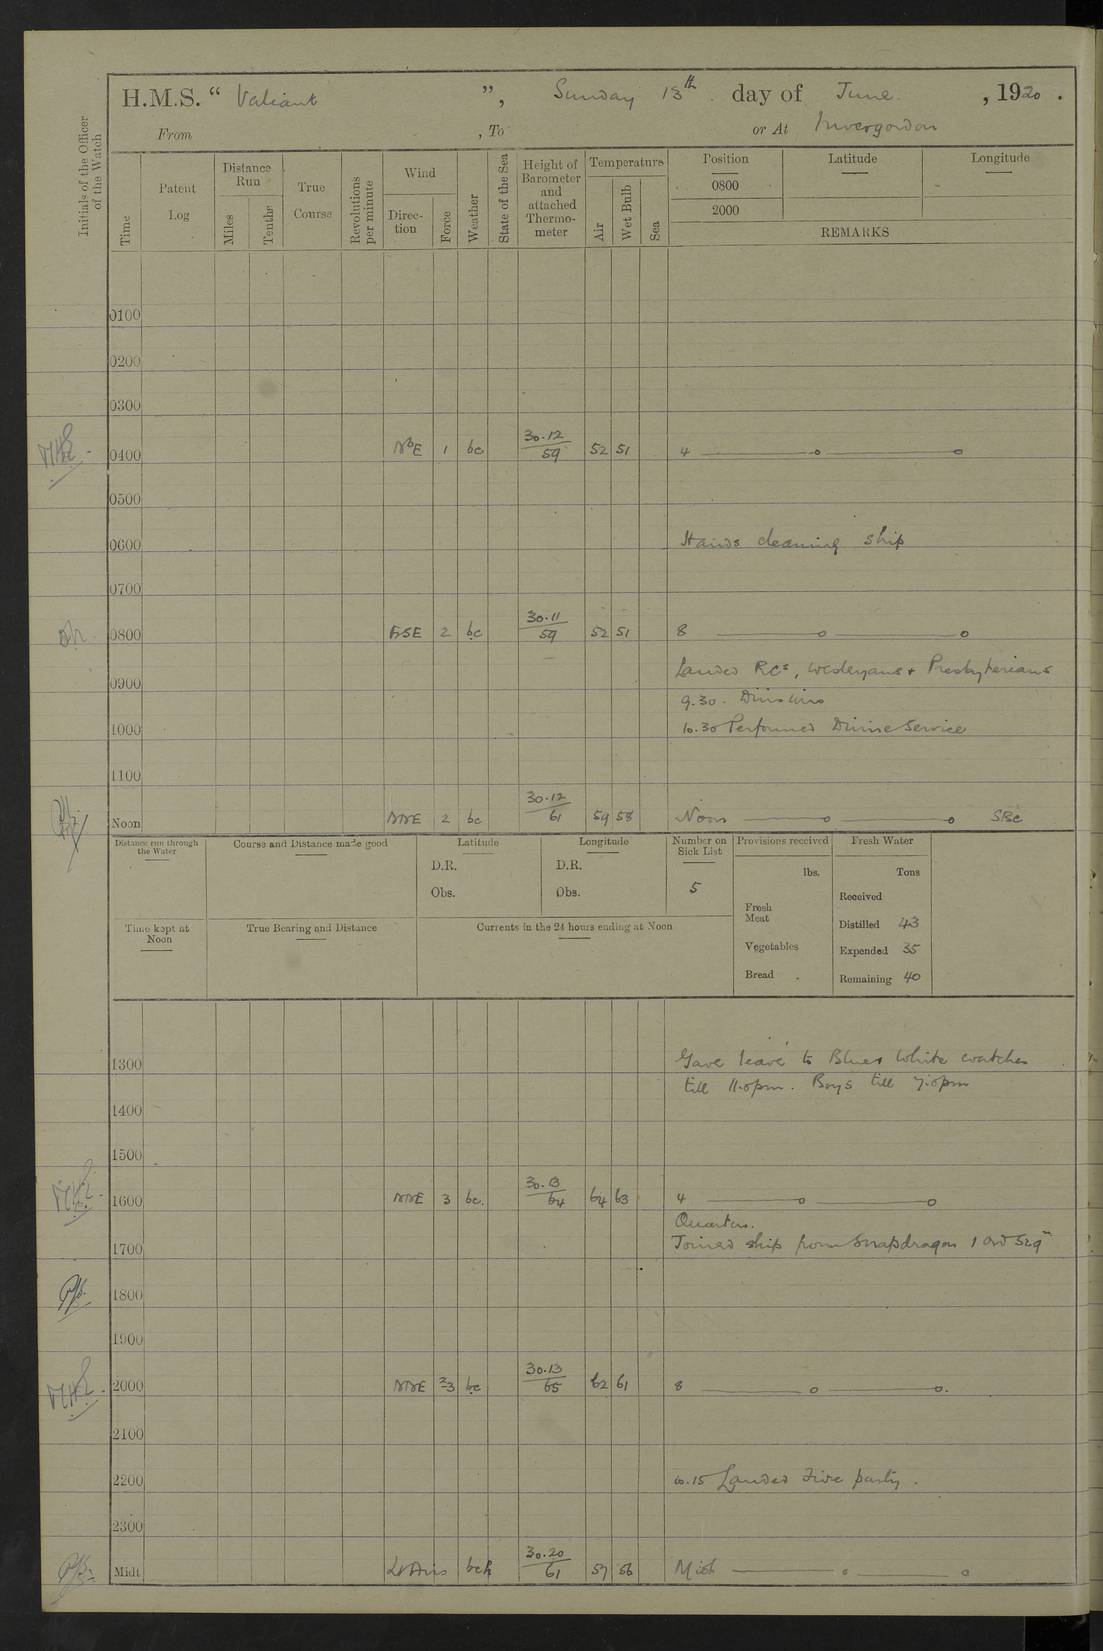 H.M.S. “ Valiant ”, Sunday 13th day of June, 1920.
From , To or At Invergordon
Initials of the Officer of the Watch
Time
Patent Log
Distance Run
Miles
Tenths
True Course
Revolutions per minute
Wind
Direction
Force
Weather
State of the Sea
Height of Barometer and attached Thermometer
Temperature
Air
Wet Bulb
Sea
Position Latitude Longitude
0800
2000
REMARKS
0100
0200
0300
0400 NbE 1 bc 30.12 59 52 51 4
0500
0600 Hands cleaning ship
0700
0800 ESE 2 bc 30.11 59 52 51 8
Landed RCs, Wesleyans + Presbyterians
0900
9.30. Divisions
1000 10.30 Performed Divine Service
1100
Noon NNE 2 bc 30.12 61 59 58 Noon
Distance run through the Water
Course and Distance made good
Latitude
D.R.
Obs.
Longitude
D.R.
Obs.
Number on Sick List
5
Provisions received
lbs.
Fresh Meat
Vegetables
Bread
Fresh Water
Tons
Received
Distilled 43
Expended 35
Remaining 40
Time kept at Noon
True Bearing and Distance
Currents in the 24 hours ending at Noon
1300 Gave leave to Blue + White watches
till 11.0pm. Boys till 7.0pm
1400
1500
1600 NNE 3 bc. 30.13 64 64 63 4
Quarters.
1700 Joined ship from Snapdragon 1 Ord Sig
1800
1900
2000 NNE 2-3 bc 30.13 65 62 61 8
2100
2200 10.15 Landed Fire party.
2300
Midt Lt Airs bch 30.20 61 57 56 Midt